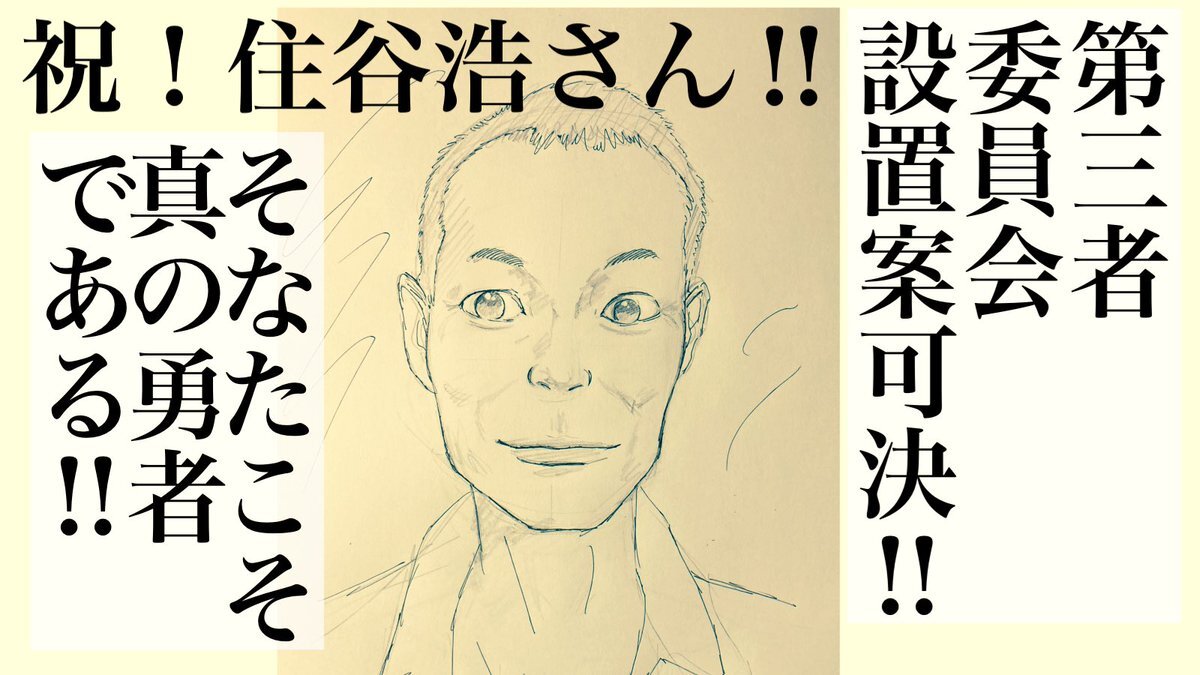 祝！住谷浩さん!!
第三者
委員会
設置案可決!!
そなたこそ
真の勇者
である!!